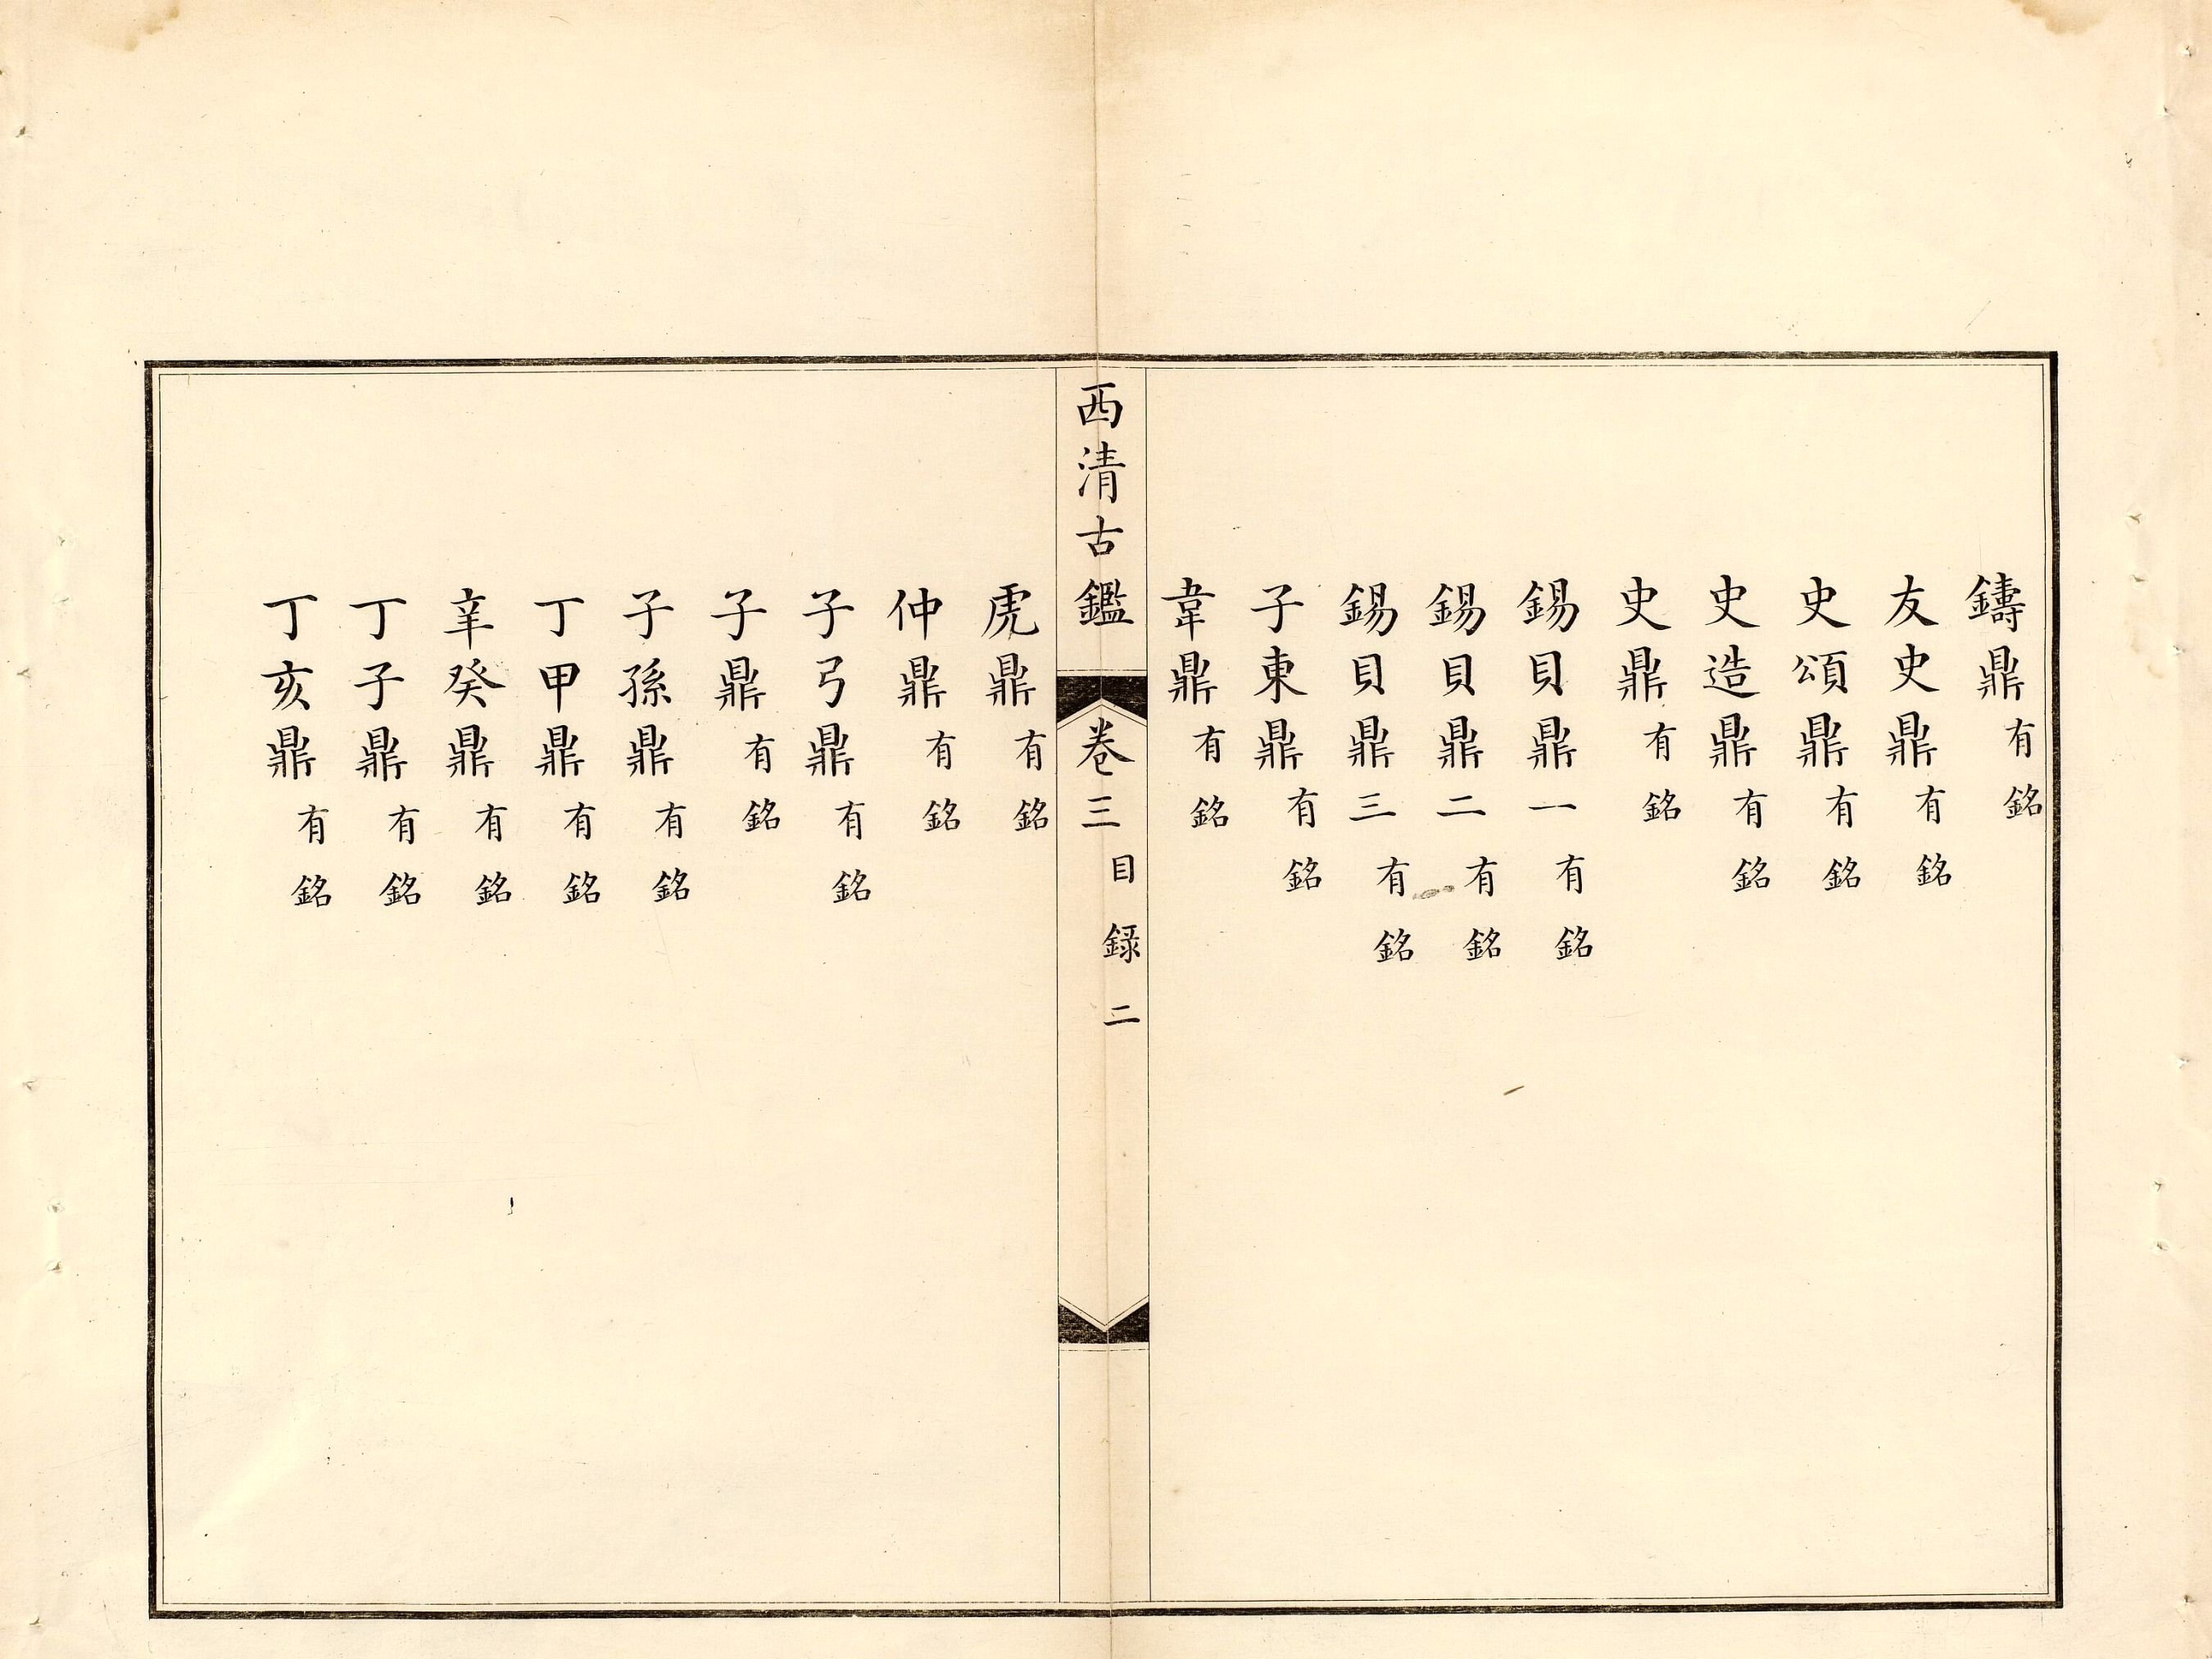 鑄鼎有銘
友史鼎有銘
史頌鼎有銘
史造鼎有銘
史鼎有銘
錫貝鼎一有銘
錫貝鼎二有銘
錫貝鼎三有銘
子東鼎有銘
韋鼎有銘
西清古鑑 卷三 目録 二
虎鼎有銘
仲鼎有銘
子弓鼎有銘
子鼎有銘
子孫鼎有銘
丁甲鼎有銘
辛癸鼎有銘
丁子鼎有銘
丁亥鼎有銘